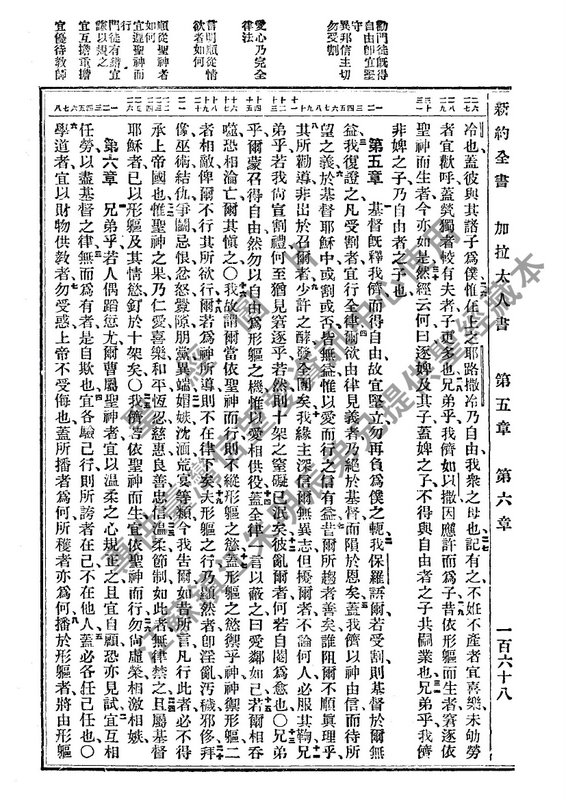 新約全書 加拉太人書 第五章 第六章 一百六十八
勸門徒旣得
自由卽宜堅
守
異邦信主切
勿受割
愛心乃完全
律法
言明順從情
欲者如何
順從聖神者
如何
宜遵聖神而
行
門徒有錯宜
以規之
宜互擔重擔
宜優待教師
冷也蓋彼與其諸子爲僕惟在上之耶路撒冷乃自由我衆之母也記有之不姙不產者宜喜樂未劬勞
者宜歡呼蓋煢獨者較有夫者子更多也兄弟乎我儕如以撒因應許而爲子昔依形軀而生者窘逐依
聖神而生者今亦如是然經云何曰逐婢及其子蓋婢之子不得與自由者之子共嗣業也兄弟乎我儕
非婢之子乃自由者之子也
第五章 基督旣釋我儕而得自由故宜堅立勿再負爲僕之軛我保羅語爾若受割則基督於爾無
益我復證之凡受割者宜行全律爾欲由律見義者乃絕於基督而隕於恩矣蓋我儕以神由信而待所
望之義於基督耶穌中或割或否皆無益惟以愛而行之信有益昔爾所趨者善矣誰阻爾不順眞理乎
其所勸導非出於召爾者少許之酵發全團矣我緣主深信爾無異志但擾爾者不論何人必服其鞫兄
弟乎若我尙宣割禮何至猶見窘逐乎若然則十架之窒礙已泯矣彼亂爾者何若自閹爲愈也〇兄弟
乎爾蒙召得自由然勿以自由爲形軀之機惟以愛相供役蓋全律一言以蔽之曰愛鄰如己若爾相吞
噬恐相淪亡爾其愼之〇我故謂爾當依聖神而行則不縱形軀之慾蓋形軀之慾禦乎神神禦形軀二
者相敵俾爾不行其所欲行爾若爲神所導則不在律下矣夫形軀之行乃顯然者卽淫亂汚穢邪侈拜
像巫術結仇爭鬬忌恨忿怒釁隙朋黨異端媢嫉沈湎荒宴等類今我吿爾如昔所言凡行此者必不得
承上帝國也惟聖神之果乃仁愛喜樂和平恆忍慈惠良善忠信溫柔節制如此者無律禁之且屬基督
耶穌者已以形軀及其情慾釘於十架矣〇我儕若依聖神而生宜依聖神而行勿尙虛榮相激相嫉
第六章 兄弟乎若人偶蹈愆尤爾曹屬聖神者宜以溫柔之心規正之且宜自顧恐亦見試宜互相
任勞以盡基督之律無而爲有者是自欺也宜各驗己行則所誇者在己不在他人蓋必各任己任也〇
學道者宜以財物供敎者勿受惑上帝不受侮也蓋所播者爲何所穫者亦爲何播於形軀者將由形軀